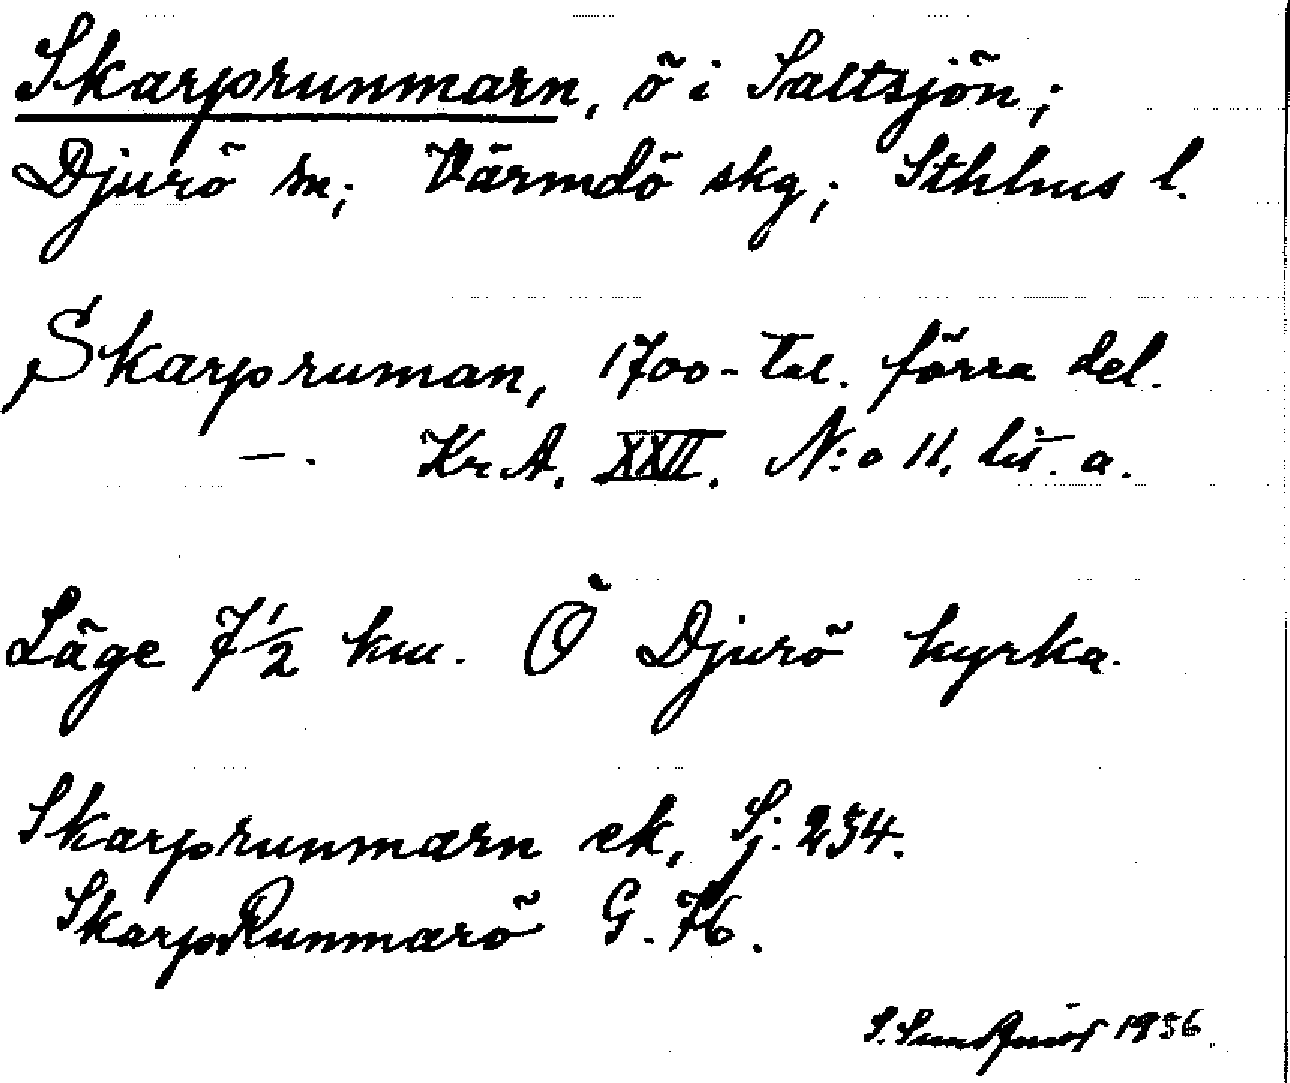 Skarprunmarn, ö i Saltsjön;
Djurö sn; Värmdö skg; Sthlms l.
Skarpruman, 1700-tal. förra del.
—. Kr.A. XXII. N:o 11. lit. a.
Läge 7½ km. Ö Djurö kyrka.
Skarprunmarn ek, Sj. 254.
SkarpRunmarö G. 76.
S. Sundquist 1936.